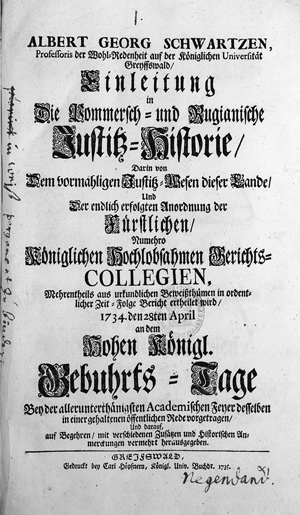 ALBERT GEORG SCHWARTZEN,
Professoris der Wohl-Redenheit auf der Königlichen Universität
Greyffswald/
Einleitung
in
Die Pommersch- und Rugianische
Justitz-Historie/
Darin von
Dem vormahligen Justitz-Wesen dieser Lande/
Und
Der endlich erfolgten Anordnung der
Fürstlichen/
Numehro
Königlichen Hochlobsahmen Gerichts-
COLLEGIEN,
Mehrentheils aus urkundlichen Beweißthümen in ordent-
licher Zeit-Folge Bericht ertheilet wird/
1734. den 28ten April
an dem
Hohen Königl.
Gebuhrts-Tage
Bey der allerunterthänigsten Academischen Feyer desselben
in einer gehaltenen öffentlichen Rede vorgetragen/
Und darauf,
auf Begehren/ mit verschiedenen Zusätzen und Historischen An-
merckungen vermehrt herausgegeben.
GREIFSWALD,
Gedruckt bey Carl Höpfnern, Königl. Univ. Buchdr. 1735.